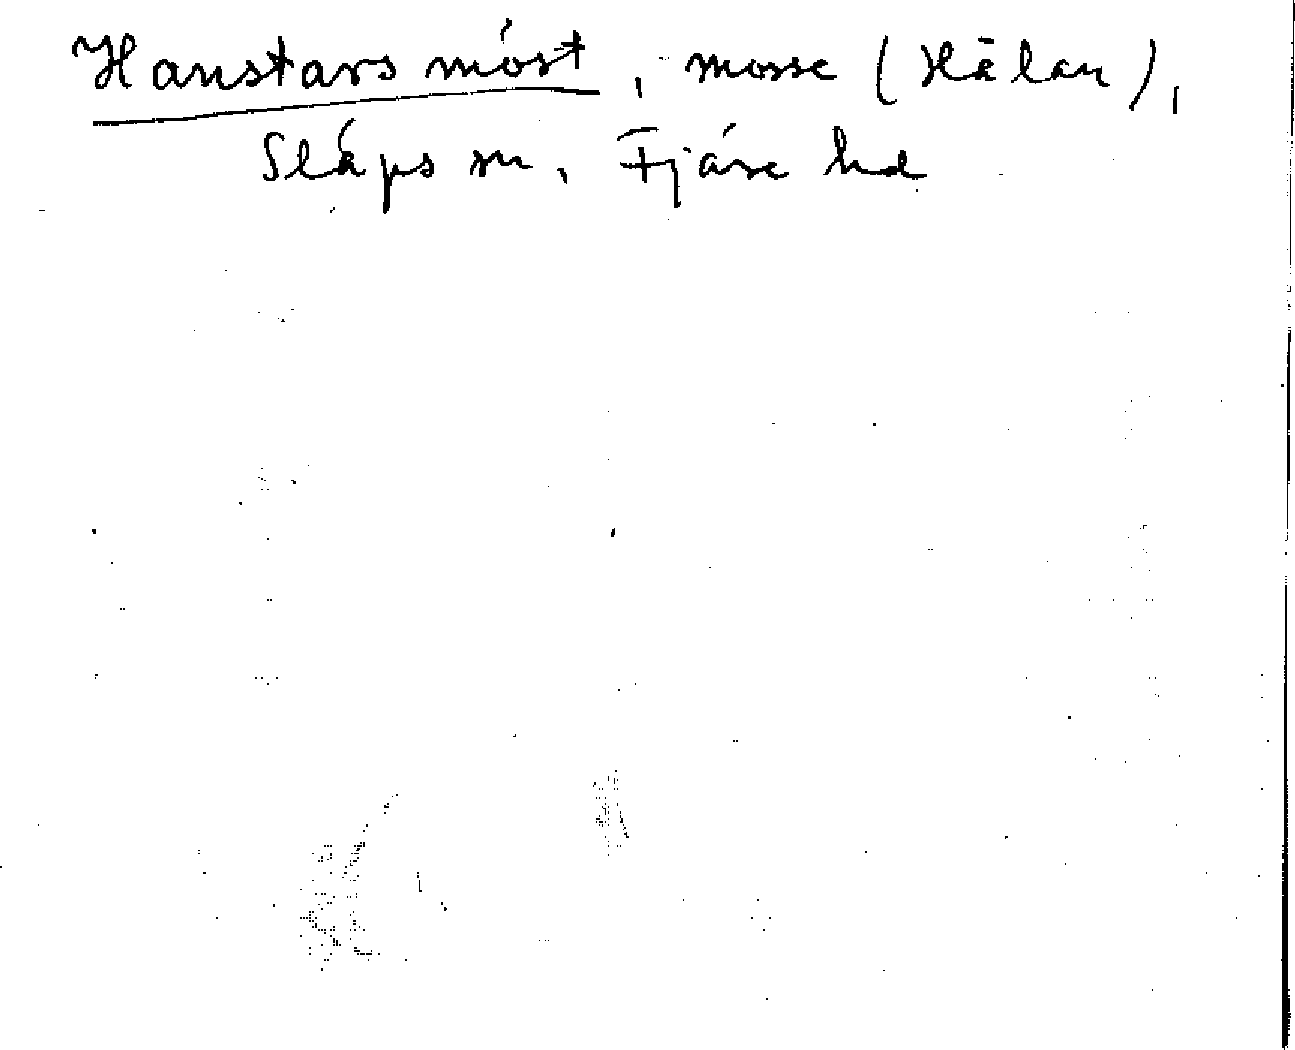 Hanstars móst, mosse (Hålan),
Släps sn, Fjäre hd